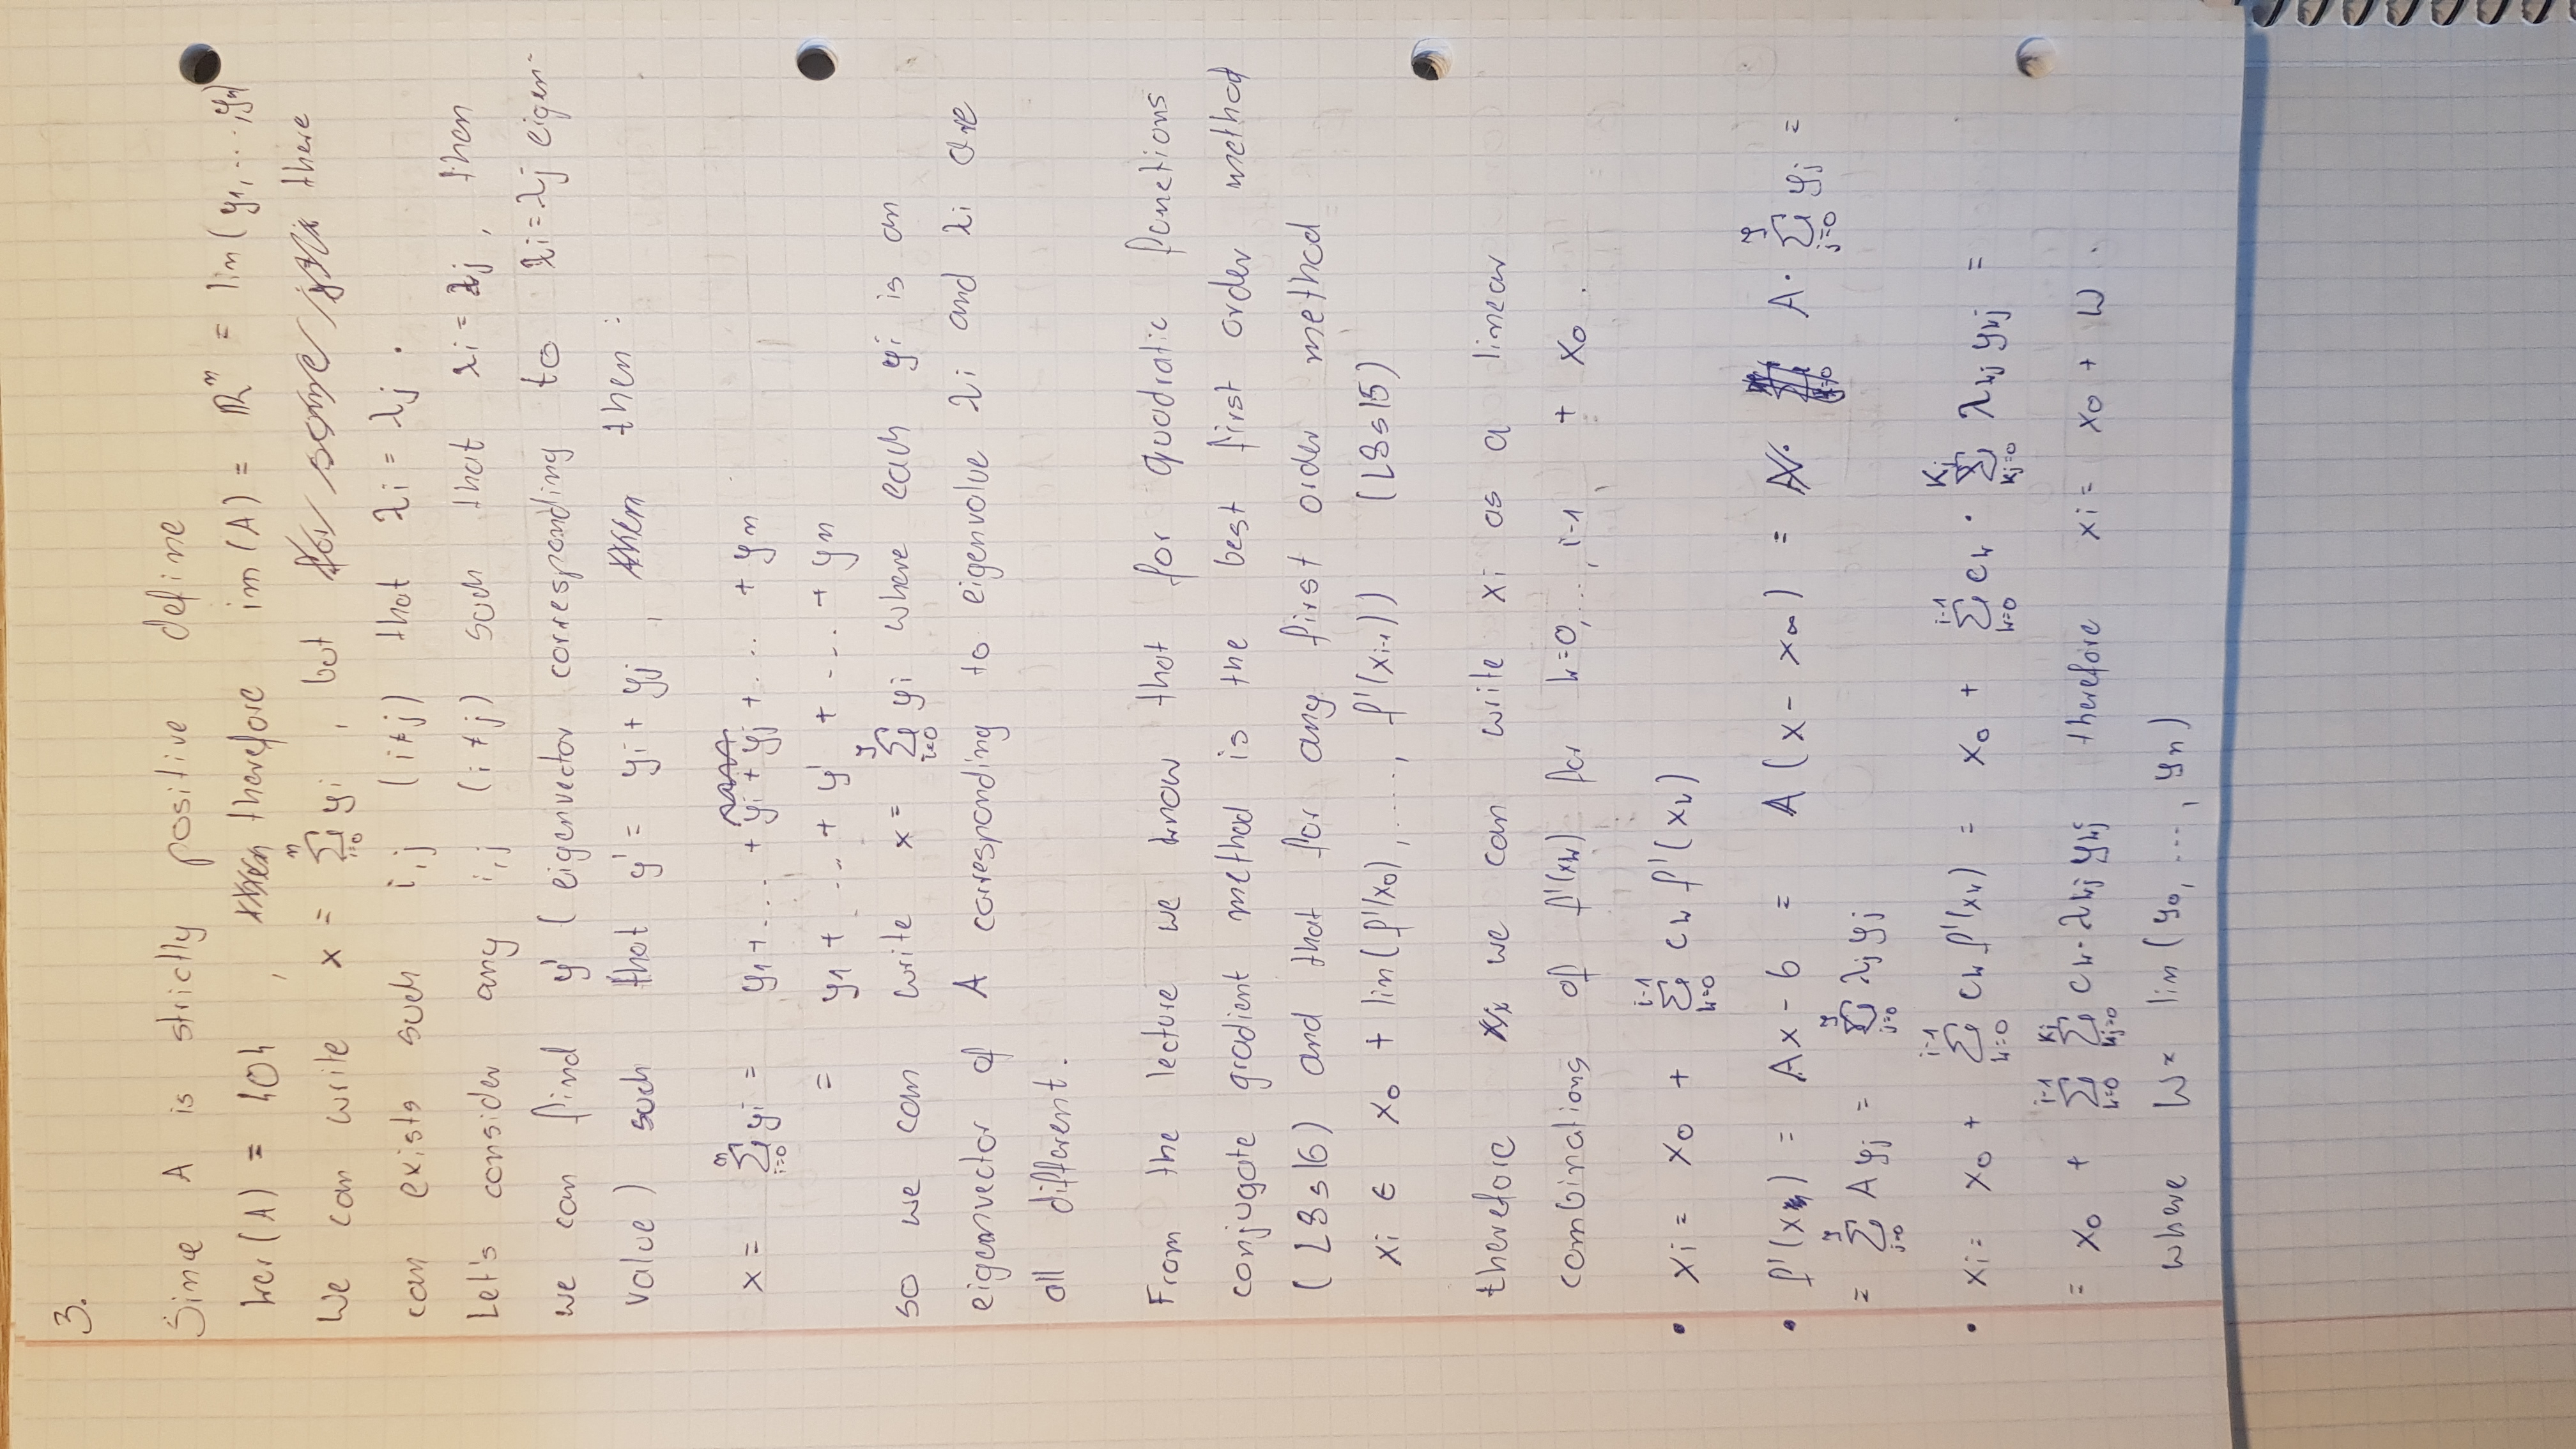 3.
Since A is strictly positive define
ker(A) = {0}, therefore im(A) = ℝⁿ = lin(y₁, ..., yₙ)
We can write x = Σ_{i=0}^{n} yᵢ, but there
can exists such i,j (i≠j) that λᵢ = λⱼ.
Let's consider any i,j (i≠j) such that λᵢ = λⱼ, then
we can find y' (eigenvector corresponding to λᵢ=λⱼ eigen-
value) such that y' = yᵢ + yⱼ, then:
x = Σ_{i=0}^{n} yᵢ = y₁ + ... + yᵢ + yⱼ + ... + yₙ
= y₁ + ... + y' + ... + yₙ
so we can write x = Σ_{i=0}^{J} yᵢ where each yᵢ is an
eigenvector of A corresponding to eigenvalue λᵢ and λᵢ are
all different.
From the lecture we know that for quadratic functions
conjugate gradient method is the best first order method
(L8 s16) and that for any first order method
xᵢ ∈ x₀ + lin(f'(x₀), ...., f'(xᵢ₋₁)) (L8 s15)
therefore we can write xᵢ as a linear
combinations of f'(xₖ) for k=0,...,i-1 + x₀.
• xᵢ = x₀ + Σ_{k=0}^{i-1} cₖ f'(xₖ)
• f'(x) = Ax - b = A(x - x∞) = A · Σ_{j=0}^{J} yⱼ =
= Σ_{j=0}^{J} A yⱼ = Σ_{j=0}^{J} λⱼ yⱼ
• xᵢ = x₀ + Σ_{k=0}^{i-1} cₖ f'(xₖ) = x₀ + Σ_{k=0}^{i-1} cₖ · Σ_{kj=0}^{Kj} λₖⱼ yₖⱼ =
= x₀ + Σ_{k=0}^{i-1} Σ_{kj=0}^{Kj} cₖ · λₖⱼ yₖⱼ therefore xᵢ = x₀ + W.
where W = lin(y₀, ..., yₙ)